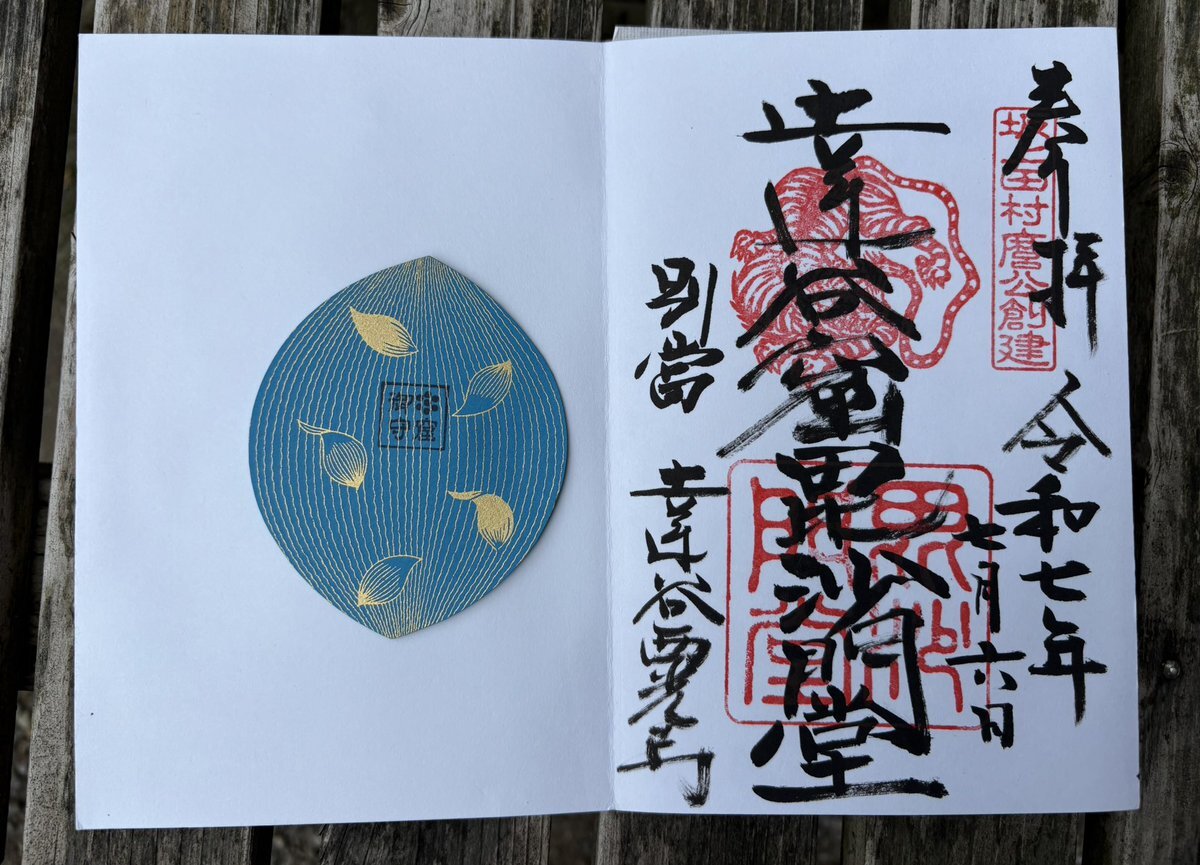 奉拝 令和七年
七月六日
坂上田村麿公創建
達谷窟毘沙門堂
毘沙門堂
別當 達谷西光寺
御守